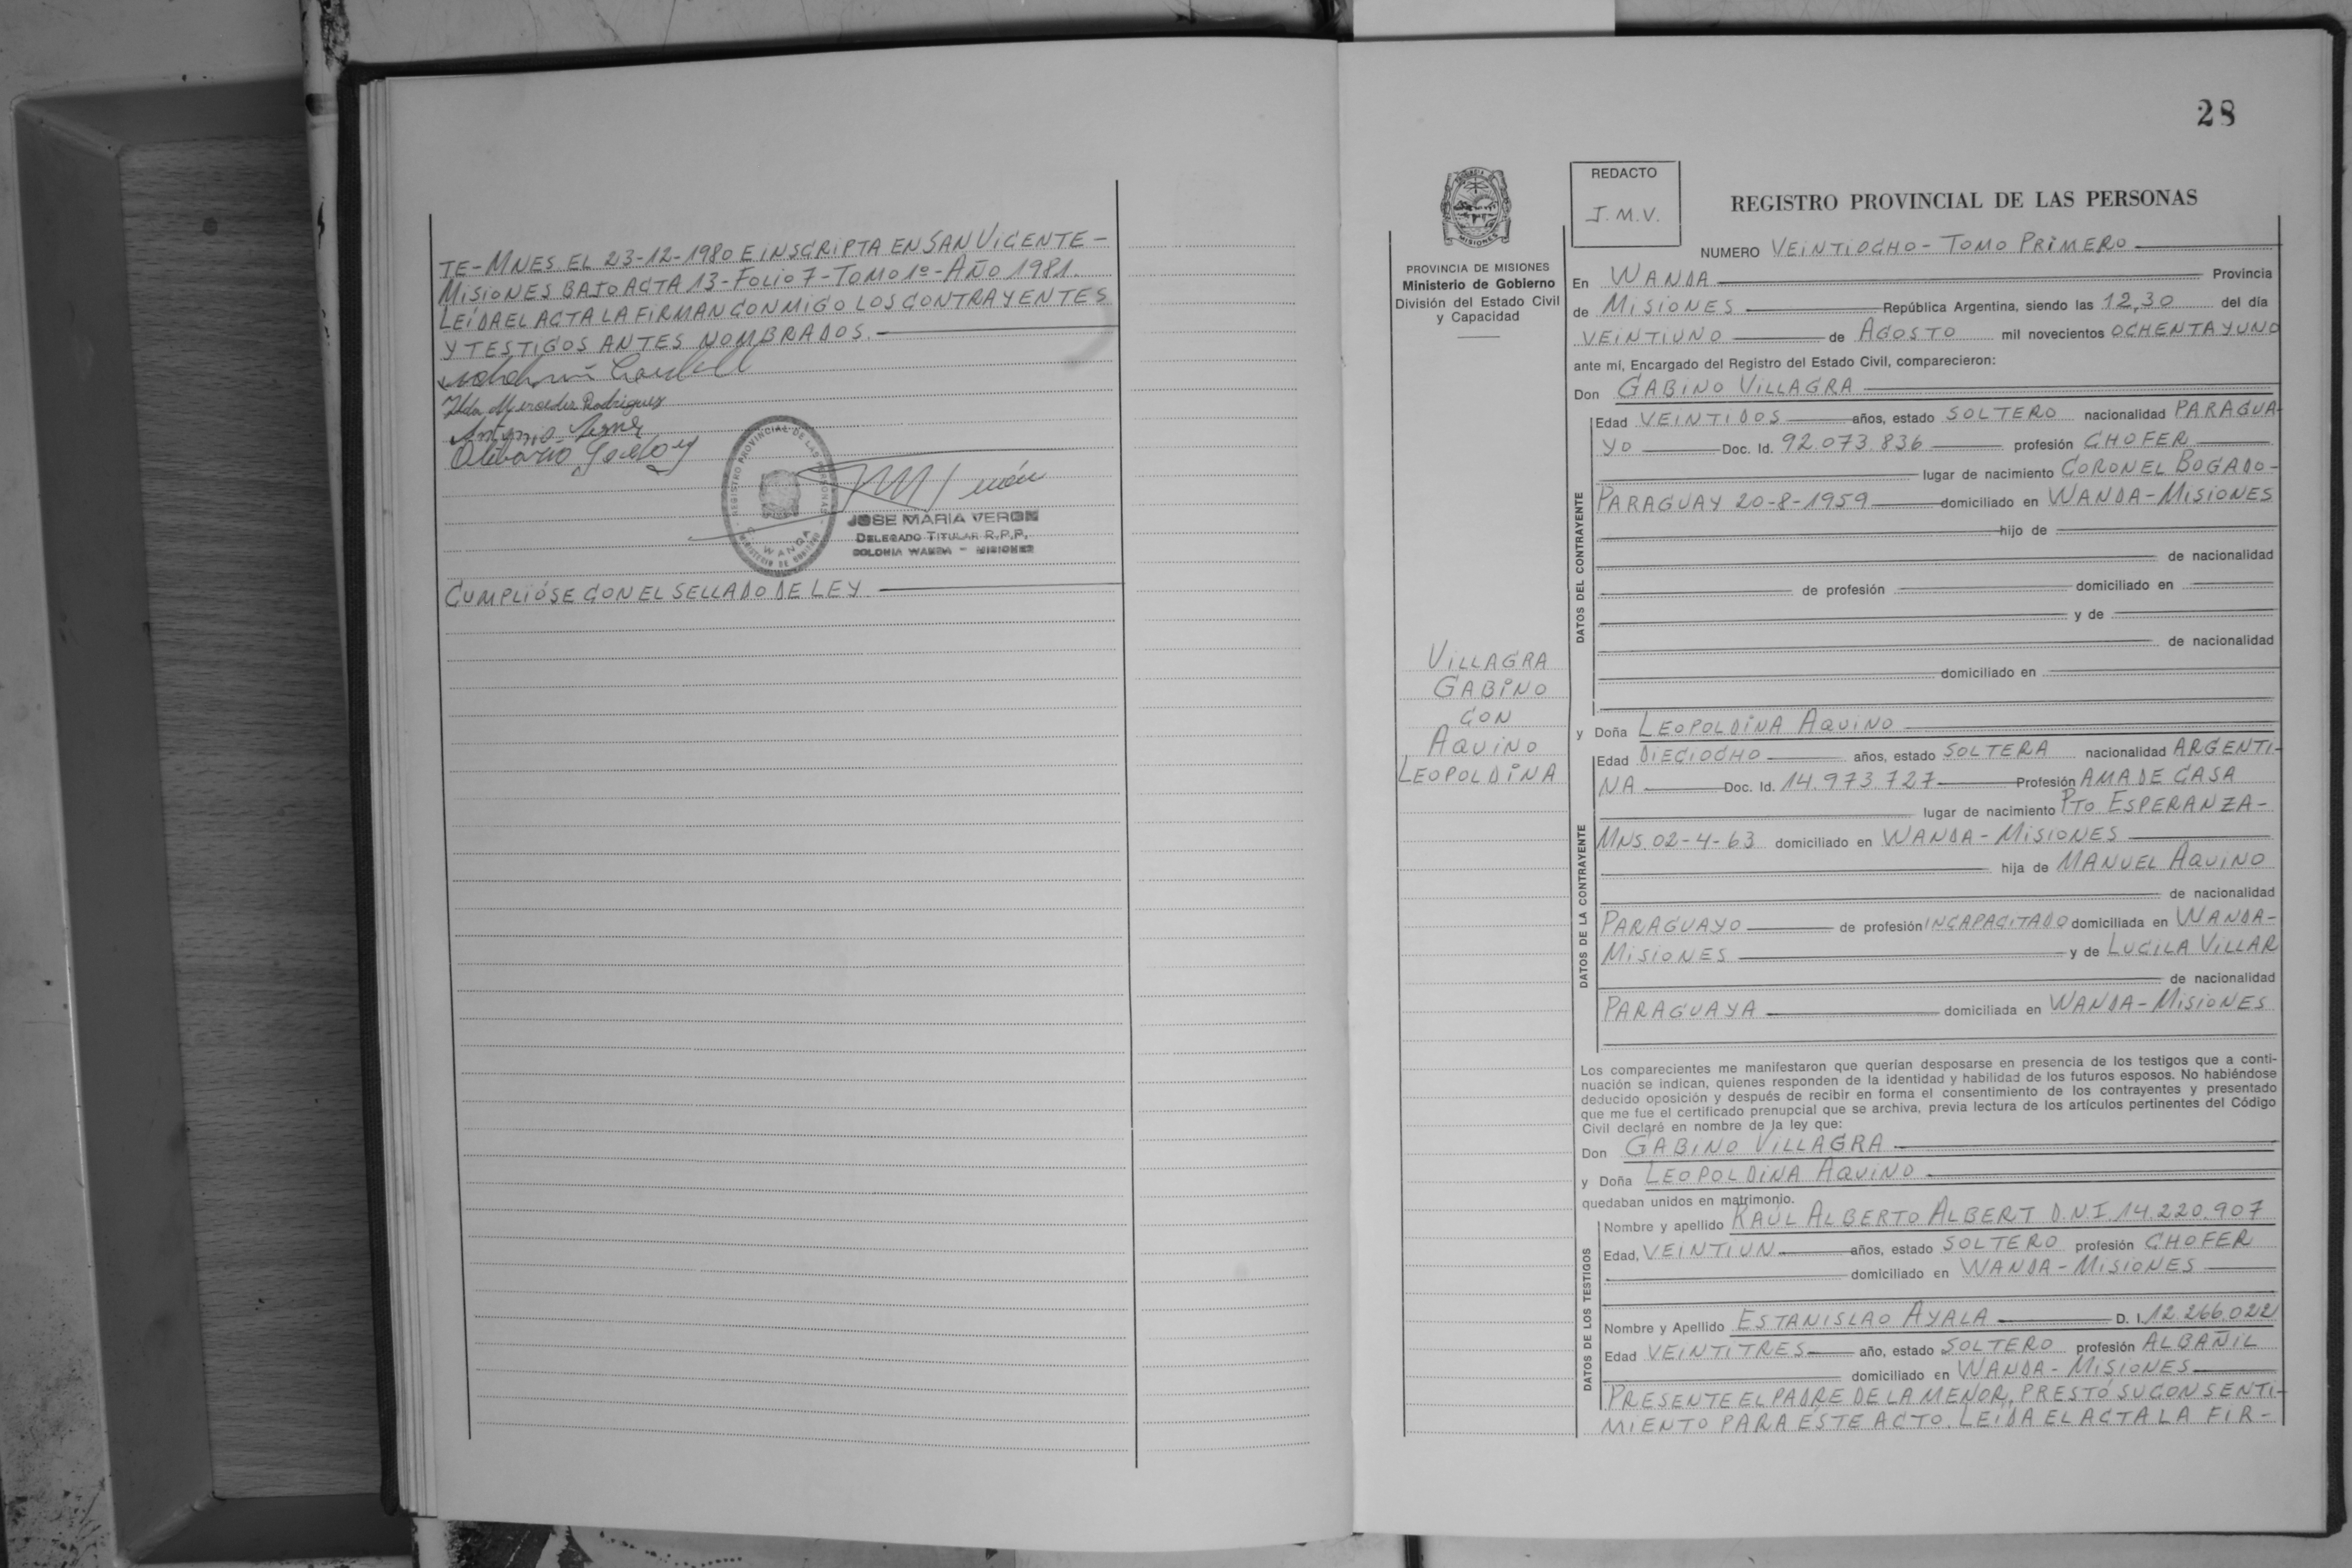 TE-MNES EL 23-12-1980 E INSCRIPTA EN SAN VICENTE-
MISIONES BAJO ACTA 13-FOLIO 7-TOMO 1º-AÑO 1981.
LEÍDA EL ACTA LA FIRMAN CONMIGO LOS CONTRAYENTES
Y TESTIGOS ANTES NOMBRADOS.
Ilda Mercedes Rodriguez
Antonio
Olibario Godoy
REGISTRO PROVINCIAL DE LAS PERSONAS
WANDA
JOSE MARIA VERON
DELEGADO TITULAR R.P.P.
COLONIA WANDA - MISIONES
CUMPLIÓSE CON EL SELLADO DE LEY
28
PROVINCIA DE MISIONES
Ministerio de Gobierno
División del Estado Civil
y Capacidad
VILLAGRA
GABINO
CON
AQUINO
LEOPOLDINA
REDACTO
J.M.V.
REGISTRO PROVINCIAL DE LAS PERSONAS
NUMERO VEINTIOCHO-TOMO PRIMERO
En WANDA Provincia
de MISIONES República Argentina, siendo las 12,30 del día
VEINTIUNO de AGOSTO mil novecientos OCHENTA Y UNO
ante mí, Encargado del Registro del Estado Civil, comparecieron:
Don GABINO VILLAGRA
DATOS DEL CONTRAYENTE
Edad VEINTIDOS años, estado SOLTERO nacionalidad PARAGUA-
YO Doc. Id. 92.073.836 profesión CHOFER
lugar de nacimiento CORONEL BOGADO-
PARAGUAY 20-8-1959 domiciliado en WANDA-MISIONES
hijo de
de nacionalidad
de profesión domiciliado en
y de
de nacionalidad
domiciliado en
y Doña LEOPOLDINA AQUINO
DATOS DE LA CONTRAYENTE
Edad DIECIOCHO años, estado SOLTERA nacionalidad ARGENTI-
NA Doc. Id. 14.973.727 Profesión AMA DE CASA
lugar de nacimiento PTO ESPERANZA-
MNS.02-4-63 domiciliado en WANDA-MISIONES
hija de MANUEL AQUINO
de nacionalidad
PARAGUAYO de profesión INCAPACITADO domiciliada en WANDA-
MISIONES y de LUCILA VILLAR
de nacionalidad
PARAGUAYA domiciliada en WANDA-MISIONES
Los comparecientes me manifestaron que querían desposarse en presencia de los testigos que a conti-
nuación se indican, quienes responden de la identidad y habilidad de los futuros esposos. No habiéndose
deducido oposición y después de recibir en forma el consentimiento de los contrayentes y presentado
que me fue el certificado prenupcial que se archiva, previa lectura de los artículos pertinentes del Código
Civil declaré en nombre de la ley que:
Don GABINO VILLAGRA
y Doña LEOPOLDINA AQUINO
quedaban unidos en matrimonio.
DATOS DE LOS TESTIGOS
Nombre y apellido RAÚL ALBERTO ALBERT D.N.I.14.220.907
Edad, VEINTIUN años, estado SOLTERO profesión CHOFER
domiciliado en WANDA-MISIONES
Nombre y Apellido ESTANISLAO AYALA D. I. 12.266.022
Edad VEINTITRES año, estado SOLTERO profesión ALBAÑIL
domiciliado en WANDA-MISIONES
PRESENTE EL PADRE DE LA MENOR, PRESTÓ SU CONSENTI-
MIENTO PARA ESTE ACTO. LEÍDA EL ACTA LA FIR-